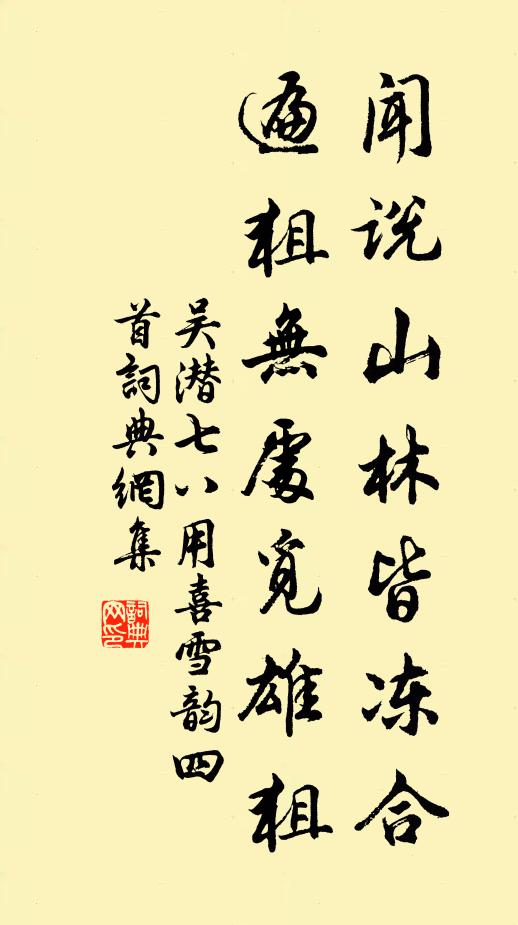 闻说山林皆冻合
遍無處覓雄
吴潜七八用喜雪韵四
首詞典網集
詞典网印